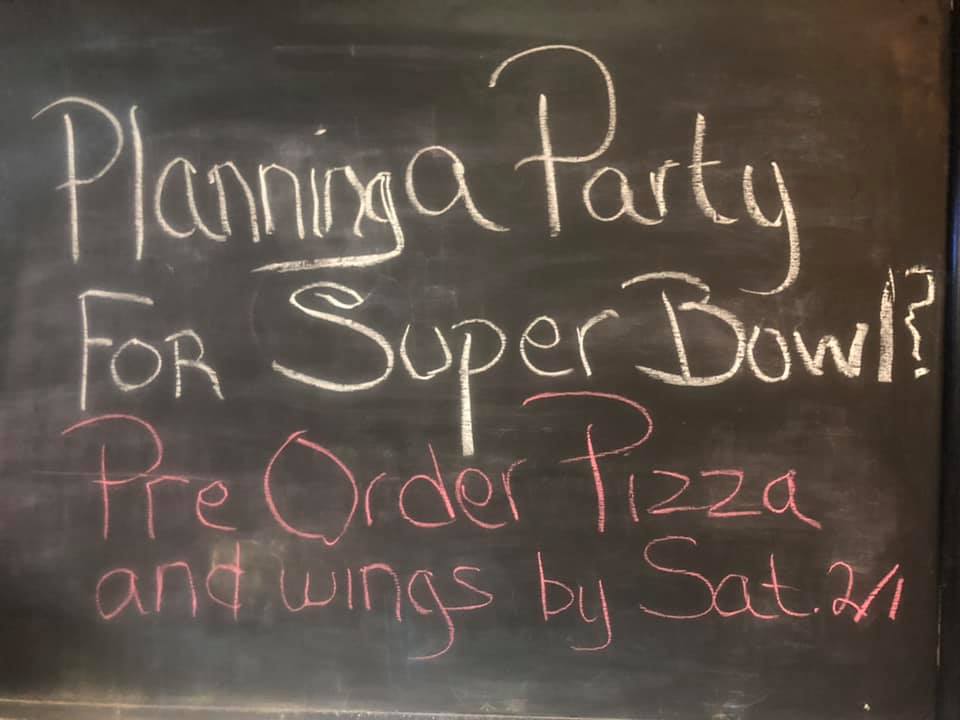 Planning a Party
FOR Super Bowl?
Pre Order Pizza
and wings by Sat. 2/1